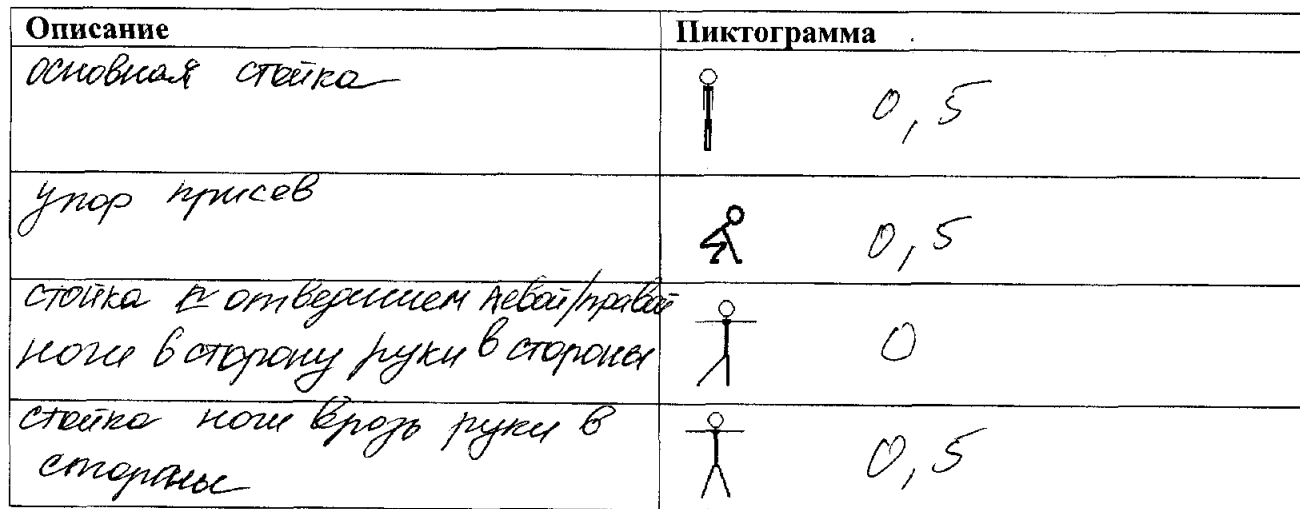 Описание
Пиктограмма
основная стойка
0,5
упор присев
0,5
стойка с отведением левой/правой
ноги в сторону руки в стороны
0
стойка ноги врозь руки в
стороны
0,5